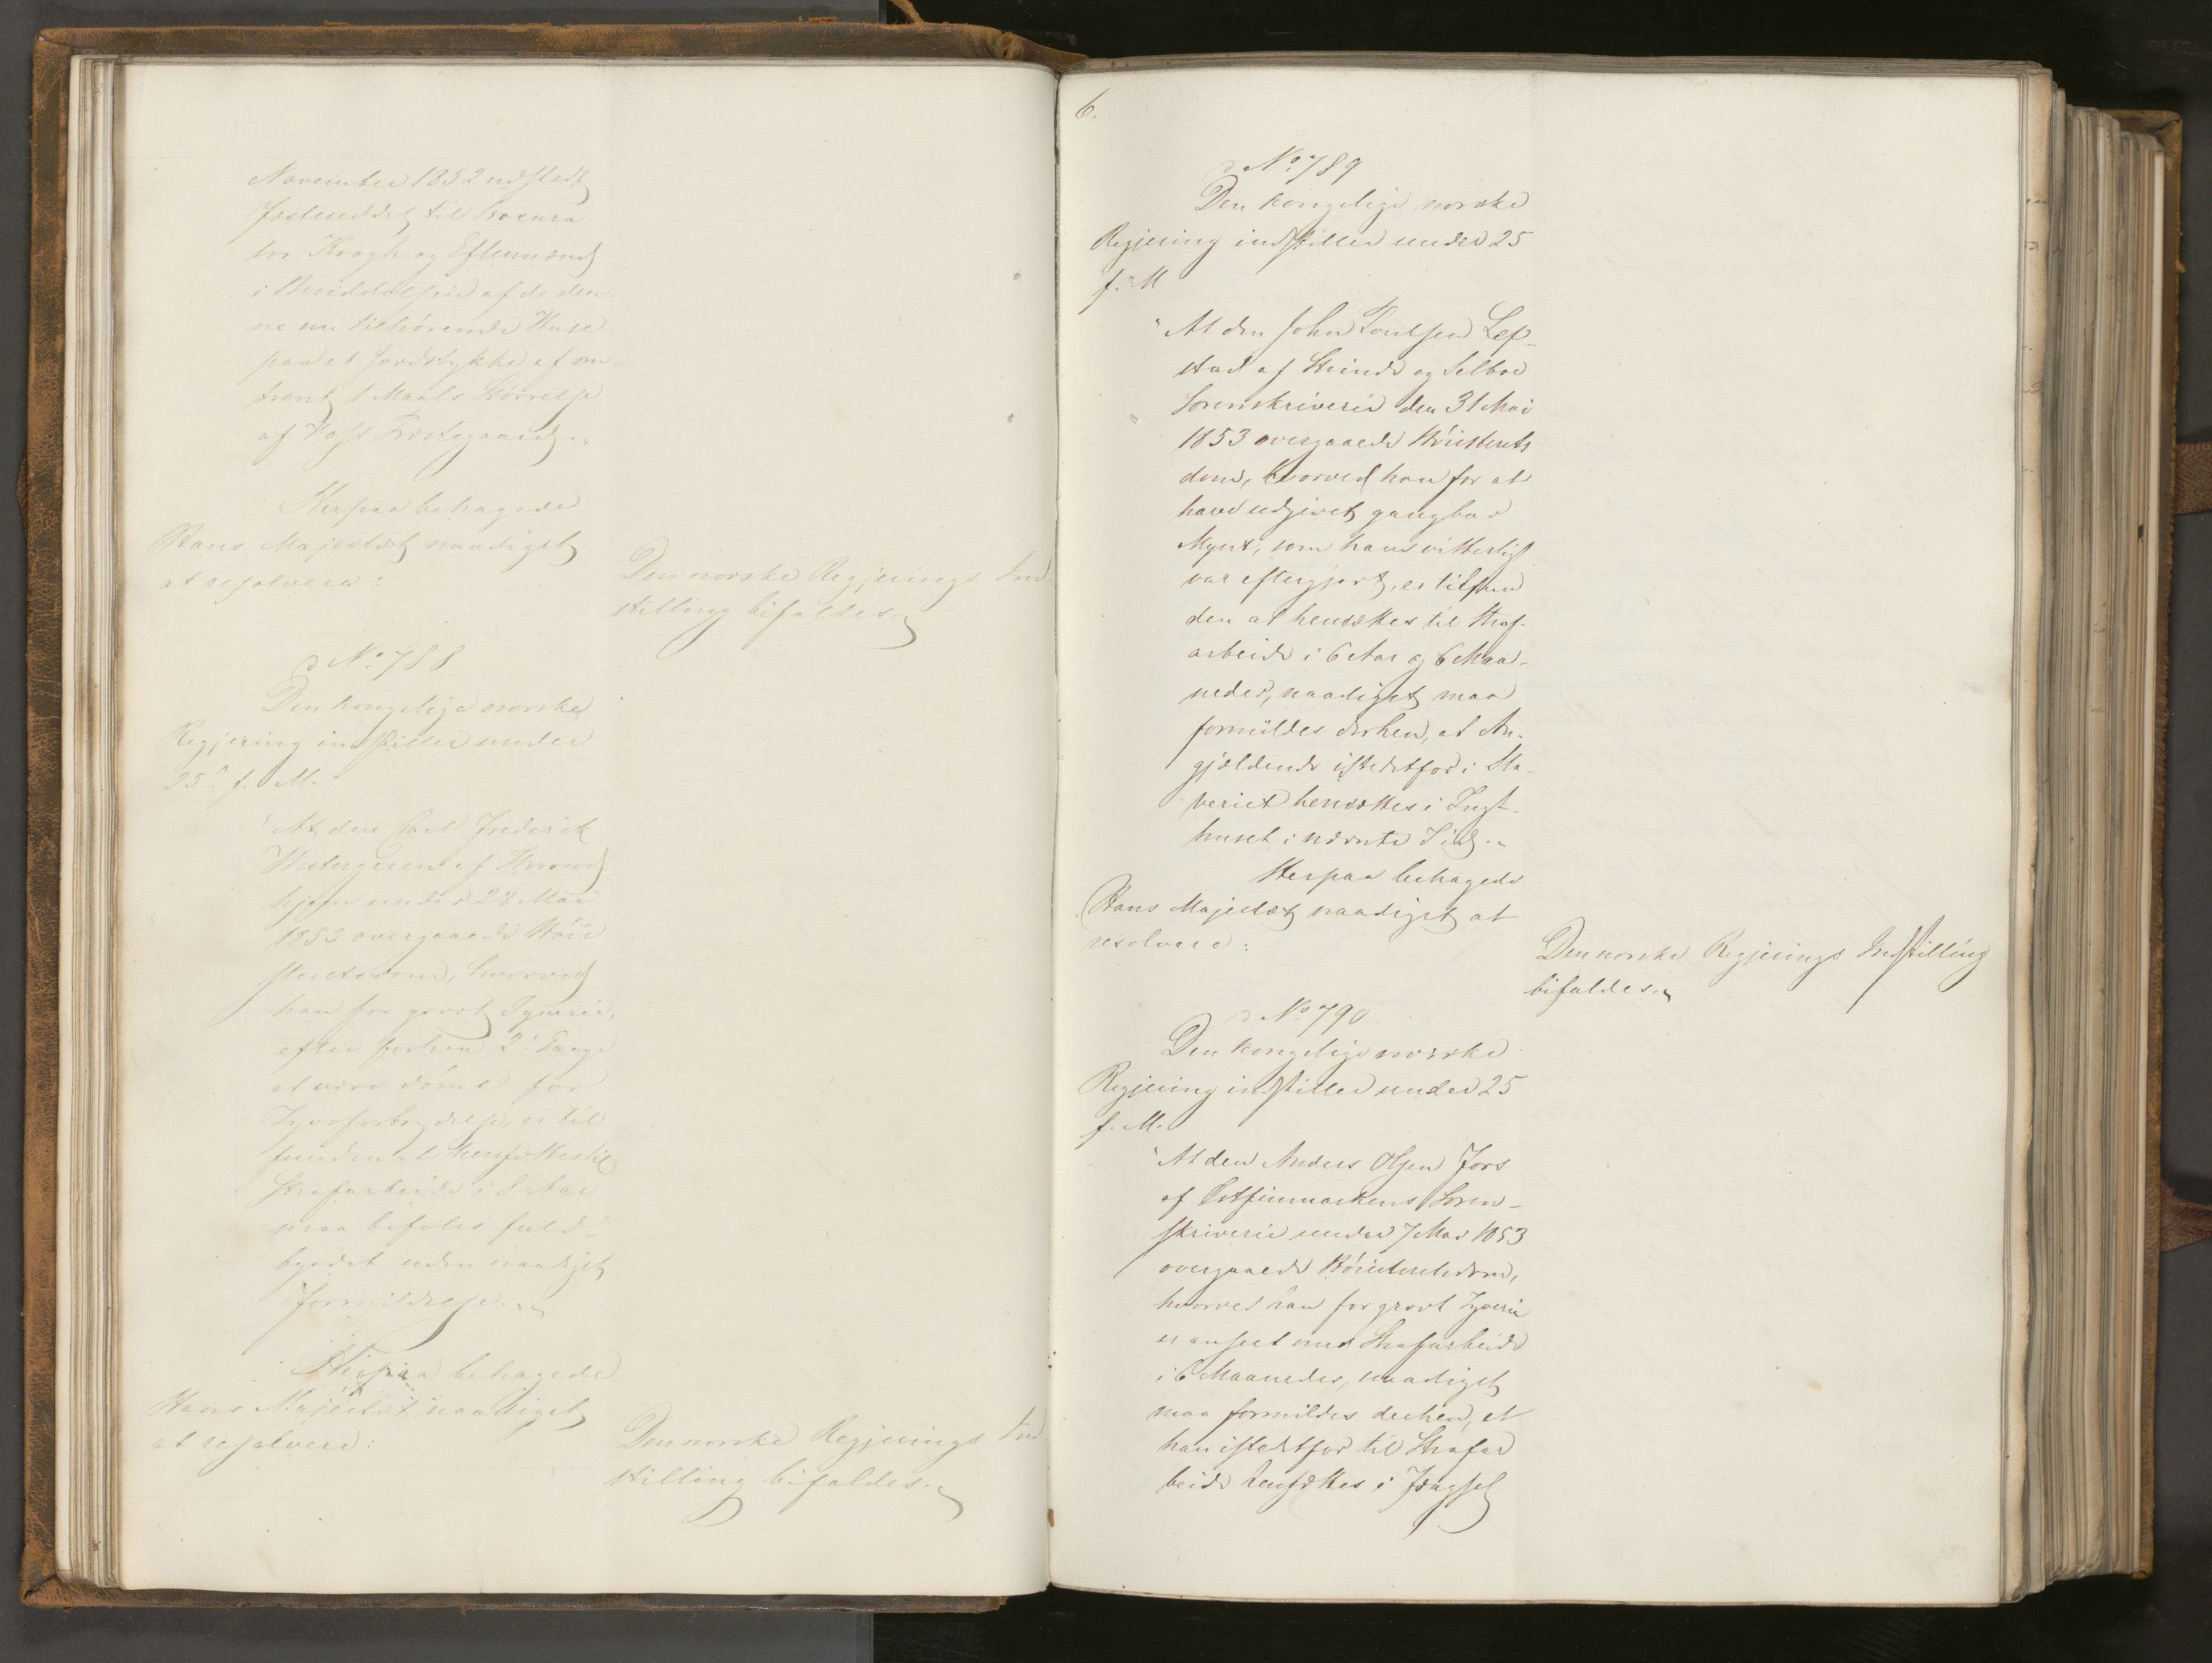 November 1852 udstedt
Fæsteseddel til Procura
tor Krogh og Eftermænd
i Besiddelsen af de den
ne nu tilhørende Huse
paa et Jordstykke af om
trent 1 Maals Størrelse
af Voss Præstegaard.„
Herpaa behagede
Hans Majestæt naadigst
at resolvere:
Den norske Regjerings Ind
stilling bifaldes.„
No 788
Den kongelige norske
Regjering indstiller under
25 f. M.
"At den Carl Frederik
Westergreen af Thrond
hjem under 28 Mai
1853 overgaaede Høie
steretsdom, hvorved
han for grovt Tyverie,
efter forhen 2 Gange
at være dømt for
Tyvsforbrydelse, er til
funden at hensættes til
Strafarbeide i 8 Aar
maa befales fuld-
byrdet uden naadigst
Formildelse.„
Herpaa behagede
Hans Majestæt naadigst
at resolvere:
Den norske Regjerings Ind
stilling bifaldes.„
6.
No 789
Den kongelige norske
Regjering indstiller under 25
f. M
"At den John Poulsen Lef-
stad af Strinde og Selboe
Sorenskriverie den 31 Mai
1853 overgaaede Høiesterets
dom, hvorved han for at
have udgivet gangbar
Mynt, som hans vitterligt
var eftergjort, er tilfun
den at hensættes til Straf-
arbeide i 6 Aar og 6 Maa-
neder, naadigst maa
formildes derhen, at An-
gjældende istedetfor i Sla-
veriet hensættes i Tugt-
huset i nævnte Tid.„
Herpaa behagede
Hans Majestæt naadigst at
resolvere:
Den norske Regjerings Indstilling
bifaldes.„
No 790
Den kongelige norske
Regjering indstiller under 25
f. M.
"At den Anders Olsen Fors
af Østfinmarkens Soren-
skriverie under 7 Mai 1853
overgaaede Høiesteretsdom,
hvorved han for grovt Tyverie
er anseet med Strafarbeide
i 6 Maaneder, naadigst
maa formildes derhen, at
han istedetfor til Strafar
beide hensættes i Fængsel